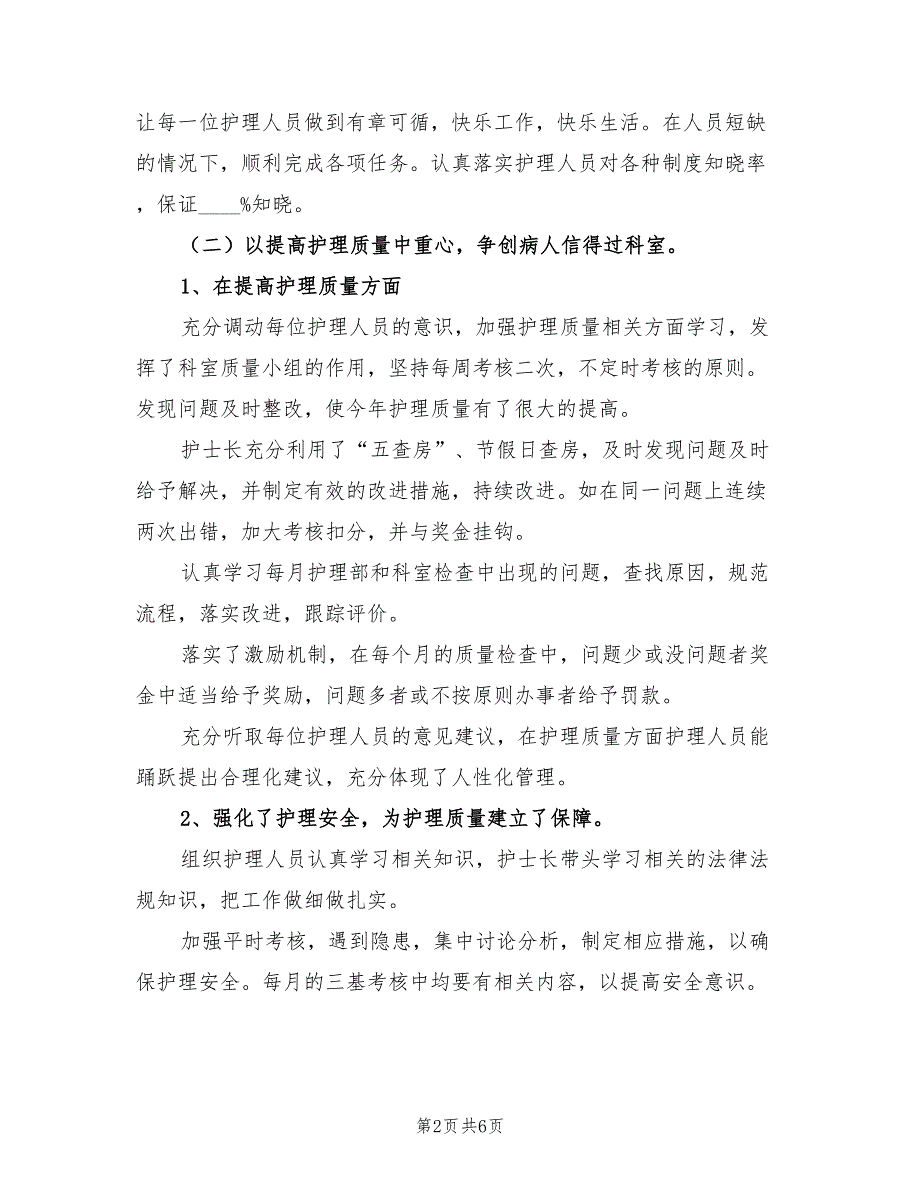 让每一位护理人员做到有章可循，快乐工作，快乐生活。在人员短缺
的情况下，顺利完成各项任务。认真落实护理人员对各种制度知晓率
，保证____%知晓。
（二）以提高护理质量中重心，争创病人信得过科室。
1、在提高护理质量方面
充分调动每位护理人员的意识，加强护理质量相关方面学习，发
挥了科室质量小组的作用，坚持每周考核二次，不定时考核的原则。
发现问题及时整改，使今年护理质量有了很大的提高。
护士长充分利用了“五查房”、节假日查房，及时发现问题及时
给予解决，并制定有效的改进措施，持续改进。如在同一问题上连续
两次出错，加大考核扣分，并与奖金挂钩。
认真学习每月护理部和科室检查中出现的问题，查找原因，规范
流程，落实改进，跟踪评价。
落实了激励机制，在每个月的质量检查中，问题少或没问题者奖
金中适当给予奖励，问题多者或不按原则办事者给予罚款。
充分听取每位护理人员的意见建议，在护理质量方面护理人员能
踊跃提出合理化建议，充分体现了人性化管理。
2、强化了护理安全，为护理质量建立了保障。
组织护理人员认真学习相关知识，护士长带头学习相关的法律法
规知识，把工作做细做扎实。
加强平时考核，遇到隐患，集中讨论分析，制定相应措施，以确
保护理安全。每月的三基考核中均要有相关内容，以提高安全意识。
第2页 共6页